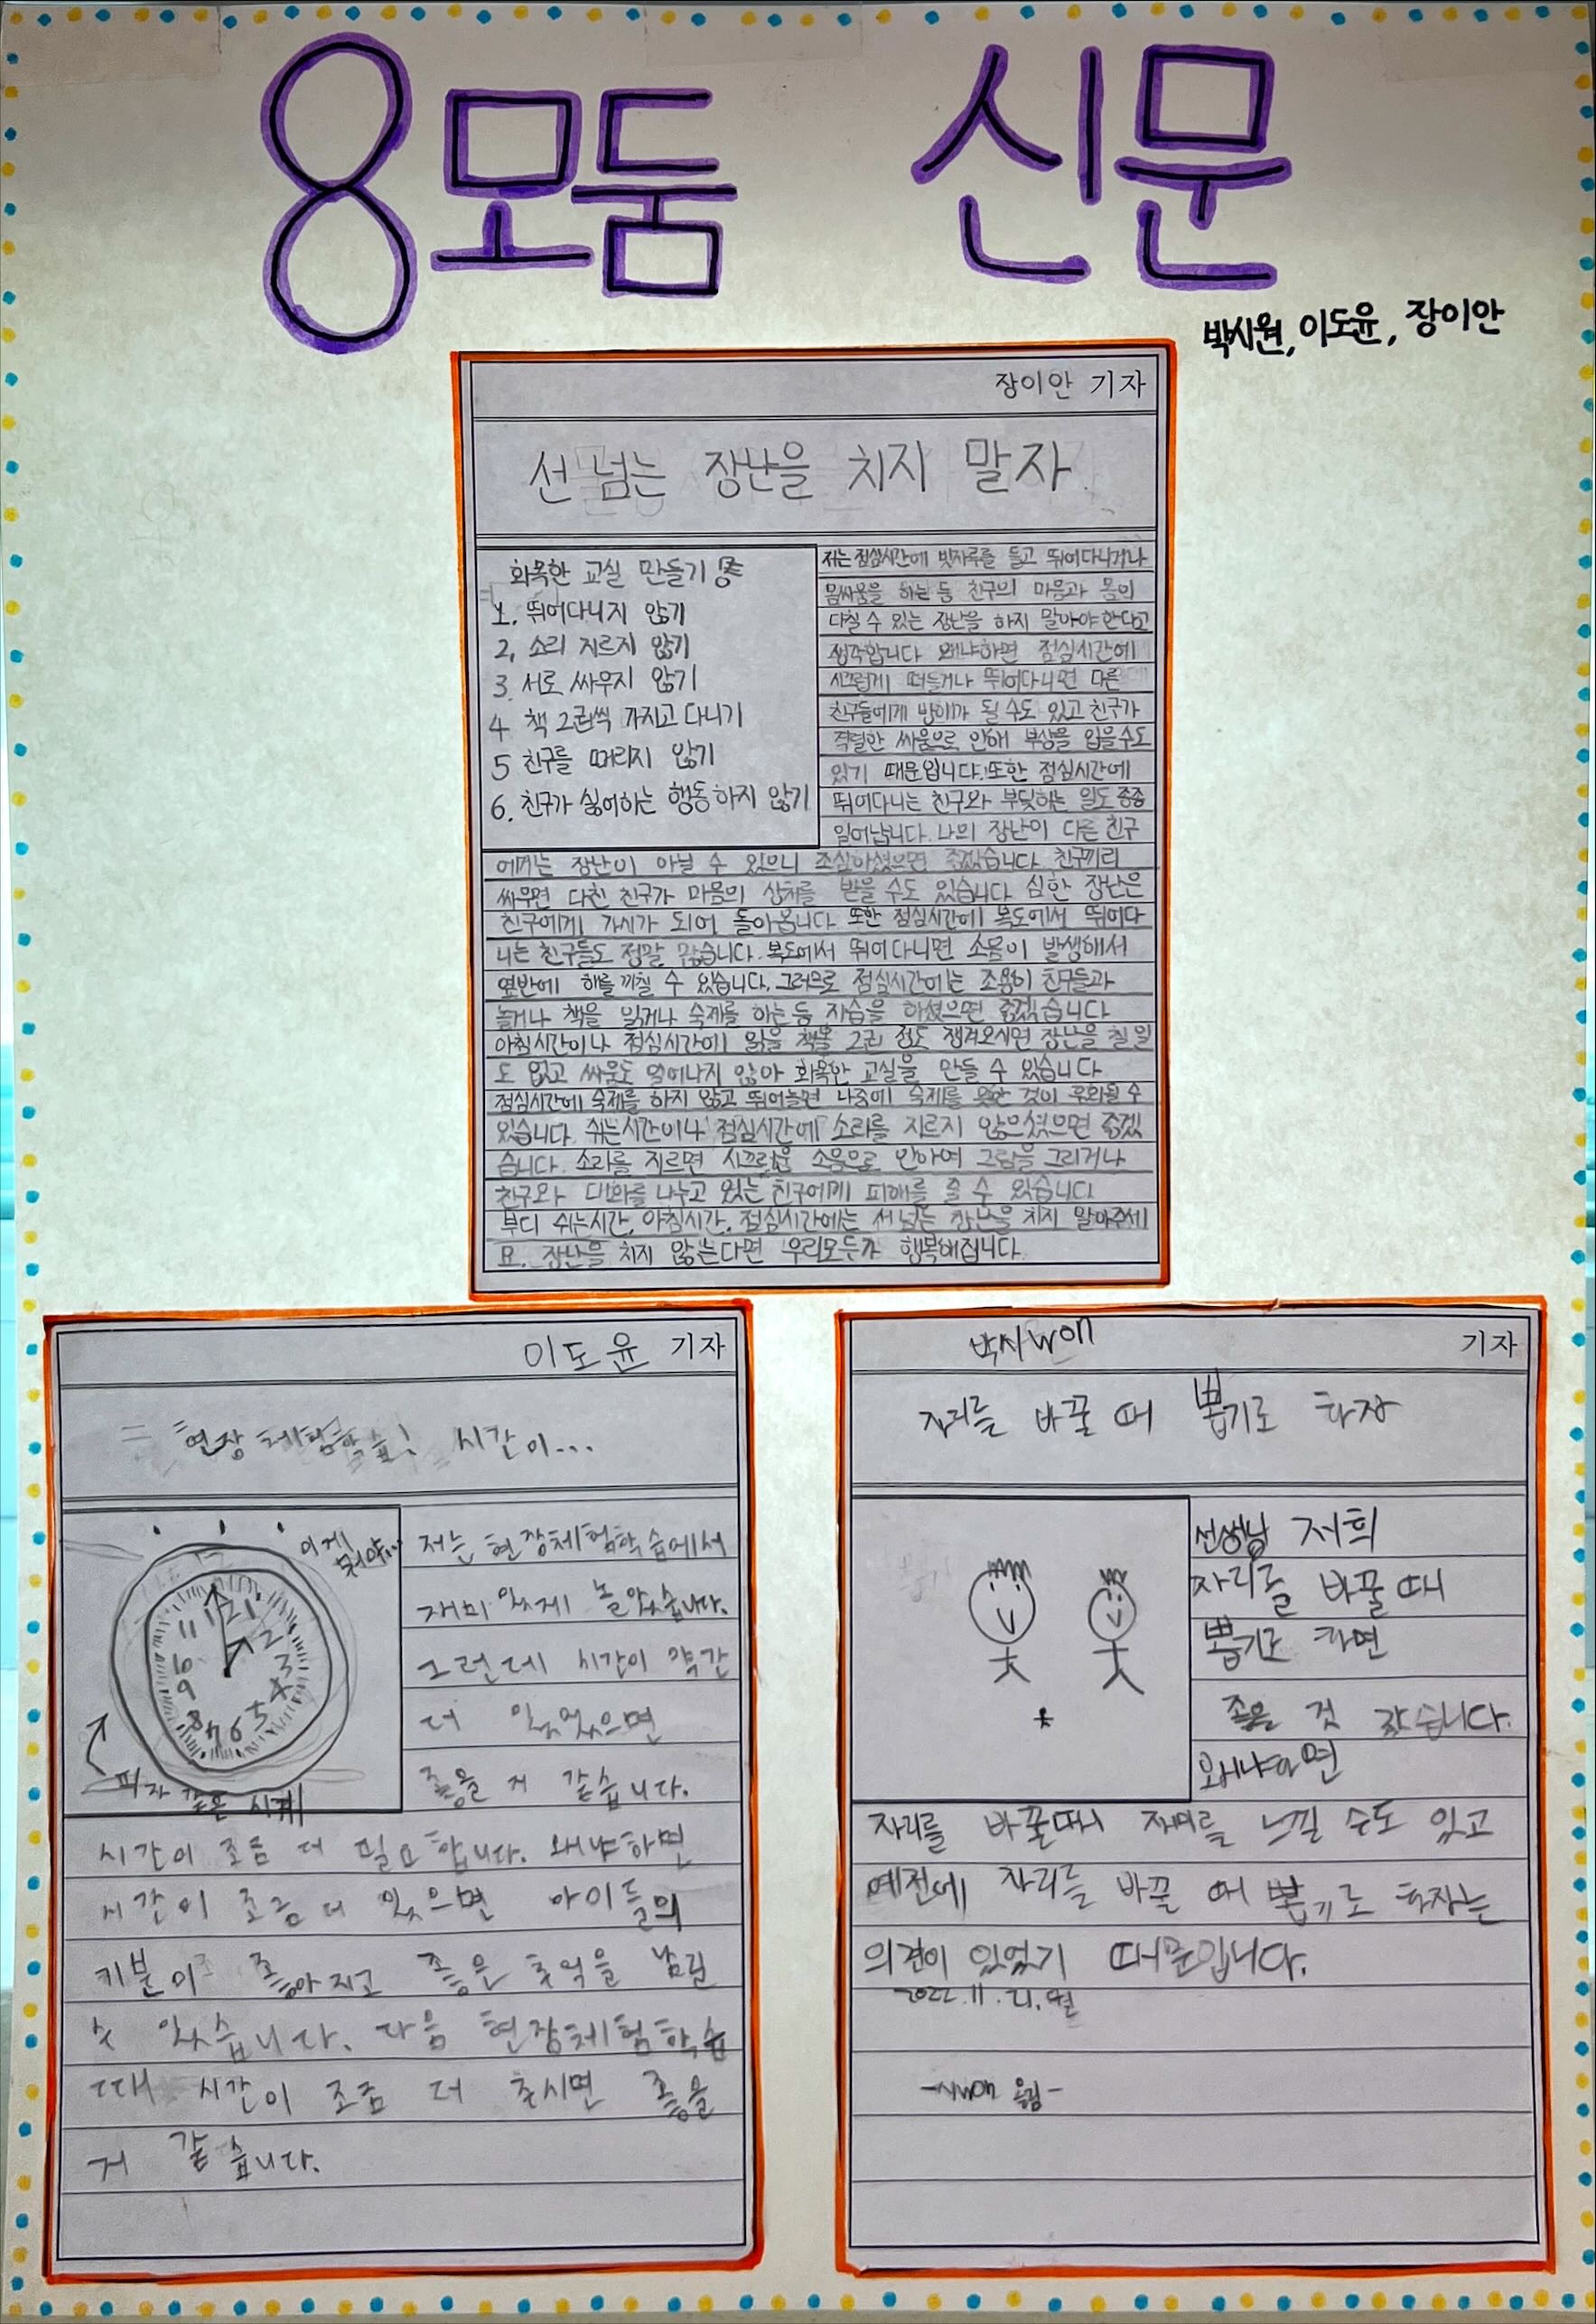 8모둠 신문
박시원, 이도윤, 장이안
장이안 기자
선 넘는 장난을 치지 말자
화목한 교실 만들기
1. 뛰어다니지 않기
2, 소리 지르지 않기
3. 서로 싸우지 않기
4 책 2권씩 가지고 다니기
5 친구를 때리지 않기
6. 친구가 싫어하는 행동하지 않기
저는 점심시간에 빗자루를 들고 뛰어다니거나
몸싸움을 하는 등 친구의 마음과 몸이
다칠 수 있는 장난을 하지 말아야 한다고
생각합니다 왜냐하면 점심시간에
시끄럽게 떠들거나 뛰어다니면 다른
친구들에게 방해가 될 수도 있고 친구가
격렬한 싸움으로 인해 부상을 입을수도
있기 때문입니다. 또한 점심시간에
뛰어다니는 친구와 부딪하는 일도 종종
일어납니다. 나의 장난이 다른 친구
에게는 장난이 아닐 수 있으니 조심하셨으면 좋겠습니다. 친구끼리
싸우면 다친 친구가 마음의 상처를 받을 수도 있습니다 심한 장난은
친구에게 가시가 되어 돌아옵니다. 또한 점심시간에 복도에서 뛰어다
니는 친구들도 정말 많습니다. 복도에서 뛰어다니면 소음이 발생해서
옆반에 해를 끼칠 수 있습니다. 그러므로 점심시간에는 조용히 친구들과
놀거나 책을 읽거나 숙제를 하는 등 자습을 하셨으면 좋겠습니다
아침시간이나 점심시간에 읽을 책을 2권 정도 챙겨오시면 장난을 칠 일
도 없고 싸움도 일어나지 않아 화목한 교실을 만들 수 있습니다
점심시간에 숙제를 하지 않고 뛰어놀면 나중에 숙제를 못한 것이 후회될 수
있습니다. 쉬는시간이나 점심시간에 소리를 지르지 않으셨으면 좋겠
습니다. 소리를 지르면 시끄러운 소음으로 인하여 그림을 그리거나
친구와 대화를 나누고 있는 친구에게 피해를 줄 수 있습니다
부디 쉬는시간, 아침시간, 점심시간에는 선넘는 장난을 치지 말아주세
요. 장난을 치지 않는다면 우리모두가 행복해집니다.
이도윤 기자
현장체험학습! 시간이...
이게 뭐야...
11 12 1 2 3 4 5 6 7 8 9
피자 같은 시계
저는 현장체험학습에서
재미있게 놀았습니다.
그런데 시간이 약간
더 있었으면
좋을 거 같습니다.
시간이 조금 더 필요합니다. 왜냐하면
시간이 조금 더 있으면 아이들의
기분이 좋아지고 좋은 추억을 남길
수 있습니다. 다음 현장체험학습
때 시간이 조금 더 주시면 좋을
거 같습니다.
박시won 기자
자리를 바꿀 때 뽑기로 하자
선생님 저희
자리를 바꿀 때
뽑기로 하면
좋을 것 같습니다.
왜냐하면
자리를 바꿀때 재미를 느낄 수도 있고
예전에 자리를 바꿀 때 뽑기로 하자는
의견이 있었기 때문입니다.
2022.11.21.월
-시won 올림-